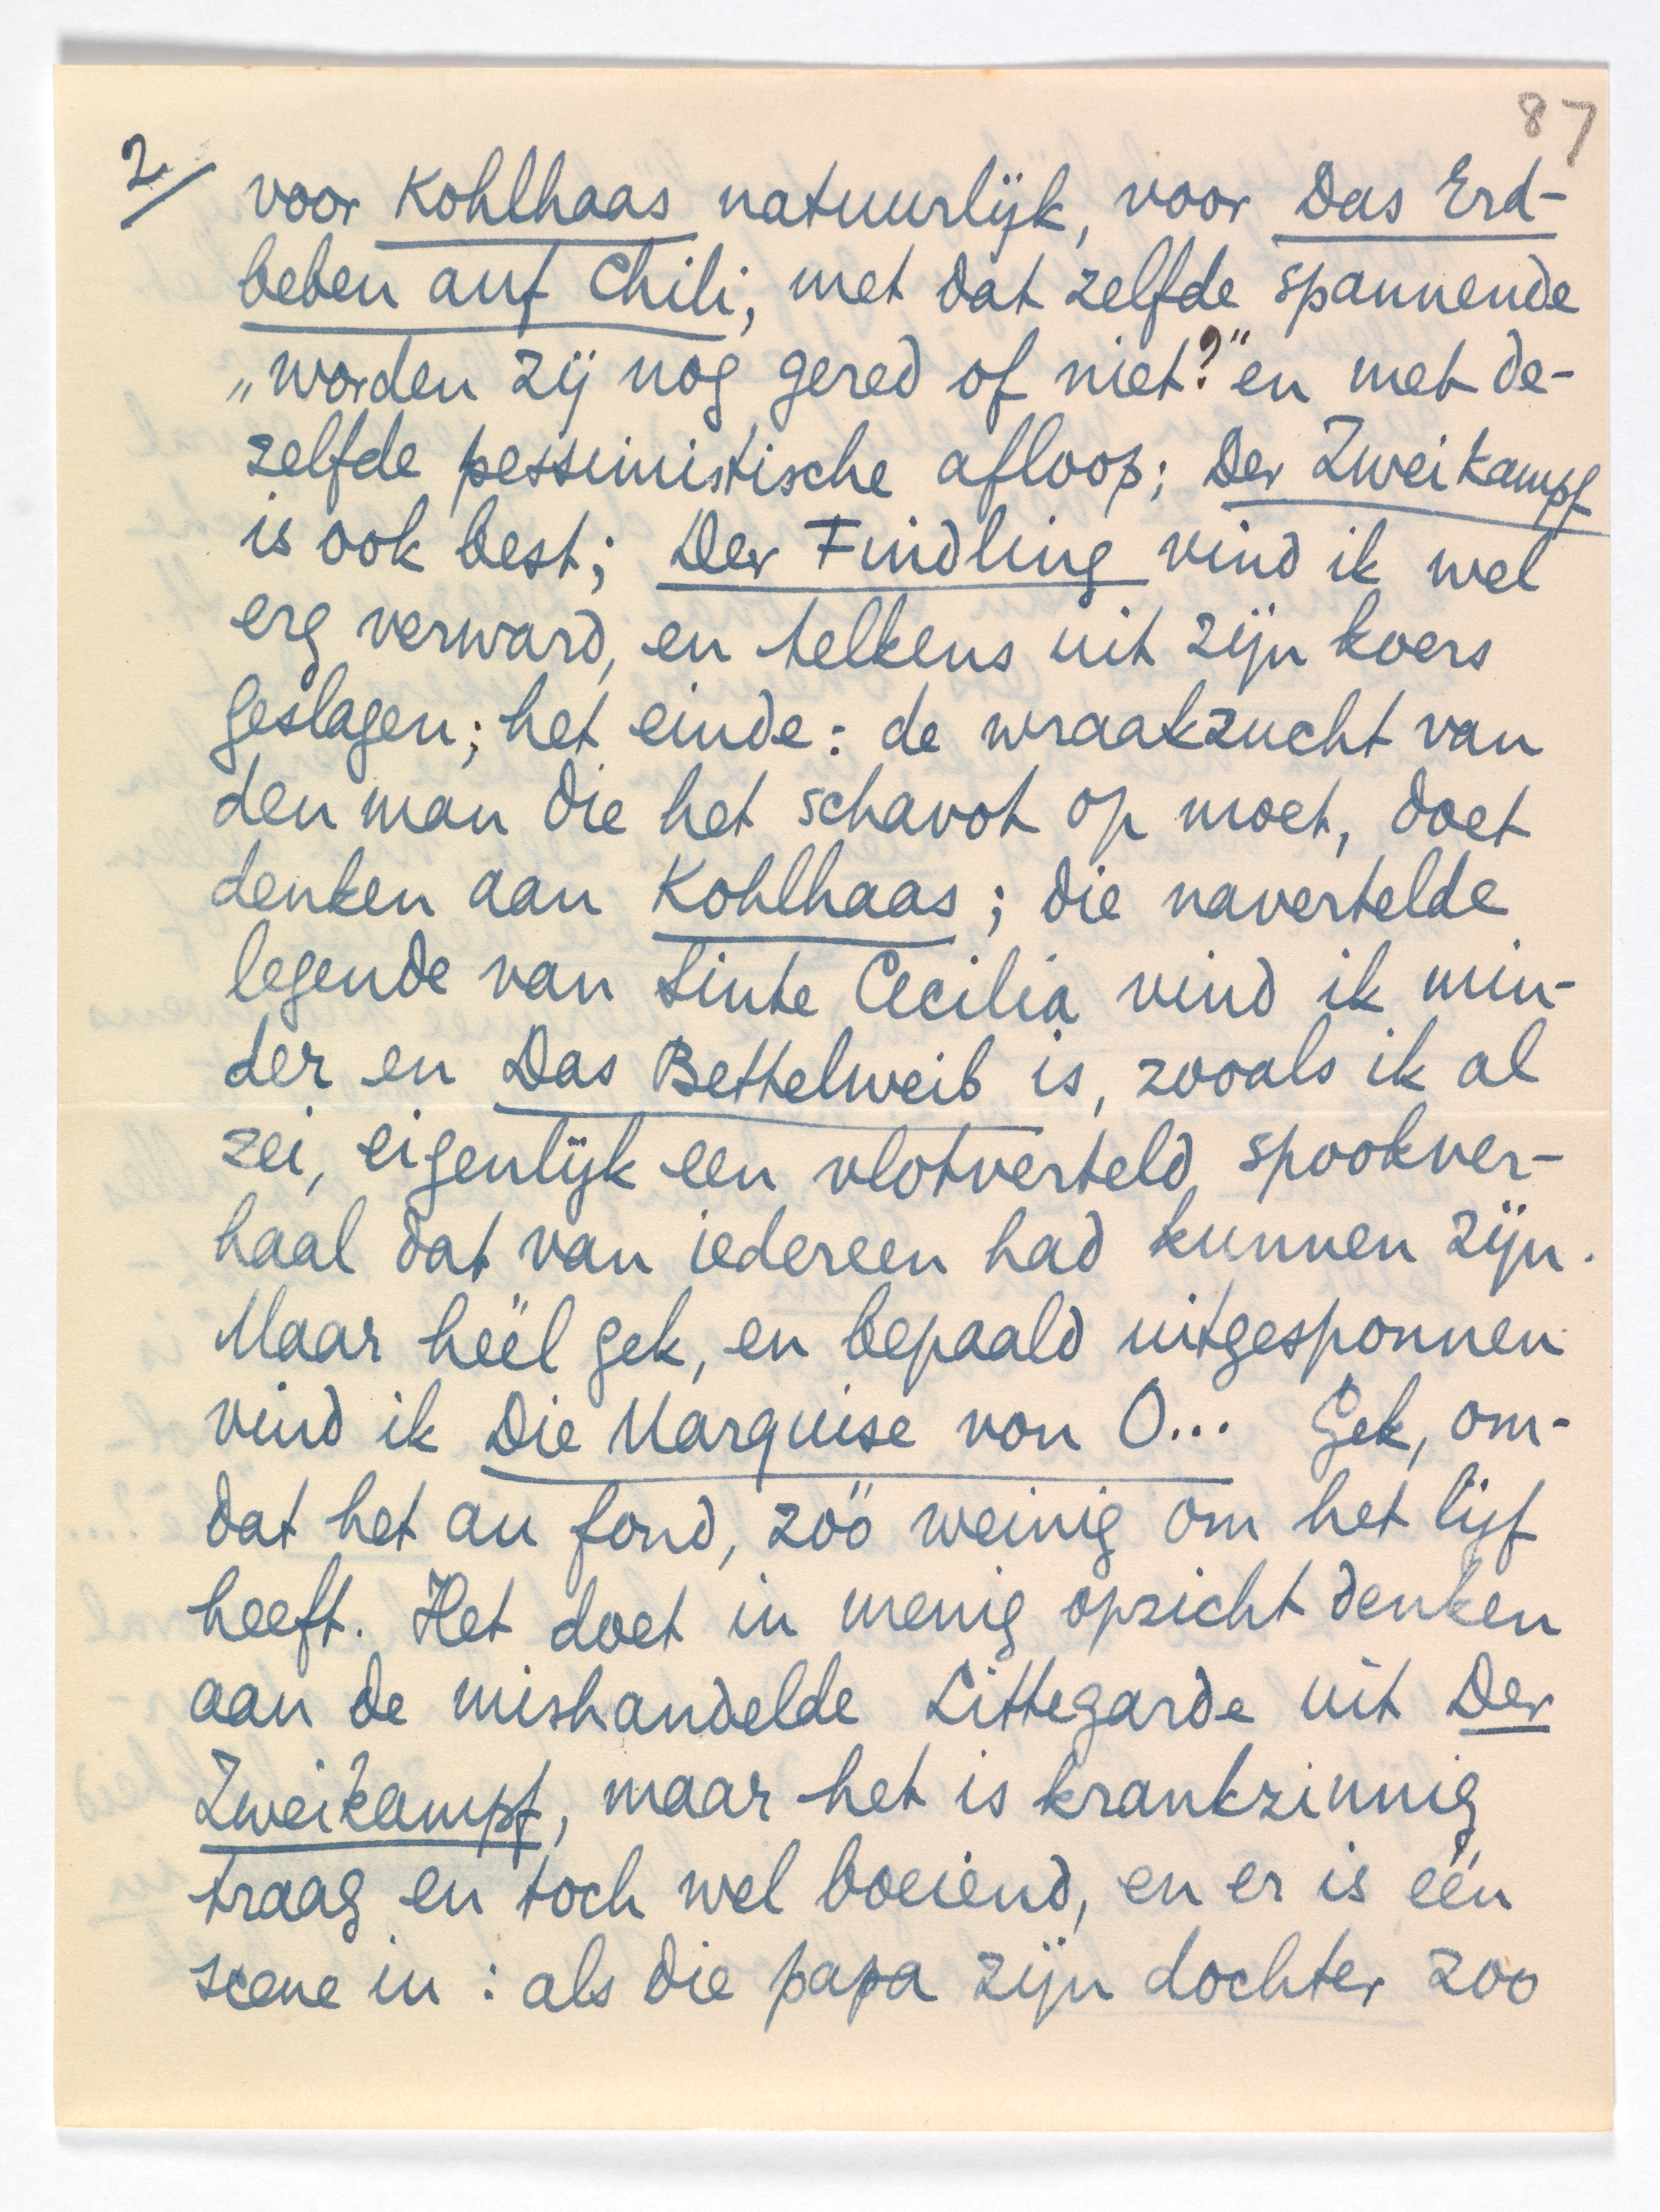 87
2/
voor Kohlhaas natuurlijk, voor Das Erd-
beben auf Chili, met dat zelfde spannende
„worden zij nog gered of niet?" en met de-
zelfde pessimistische afloop; Der Zweikampf
is ook best; Der Findling vind ik wel
erg verward, en telkens uit zijn koers
geslagen; het einde: de wraakzucht van
den man die het schavot op moet, doet
denken aan Kohlhaas; die navertelde
legende van Sinte Cecilia vind ik min-
der en Das Bettelweib is, zooals ik al
zei, eigenlijk een vlotverteld spookver-
haal dat van iedereen had kunnen zijn.
Maar héél gek, en bepaald uitgesponnen
vind ik Die Marquise von O... Gek, om-
dat het au fond, zóó weinig om het lijf
heeft. Het doet in menig opzicht denken
aan de mishandelde Littegarde uit Der
Zweikampf, maar het is krankzinnig
traag en toch wel boeiend, en er is één
scene in: als die papa zijn dochter zoo